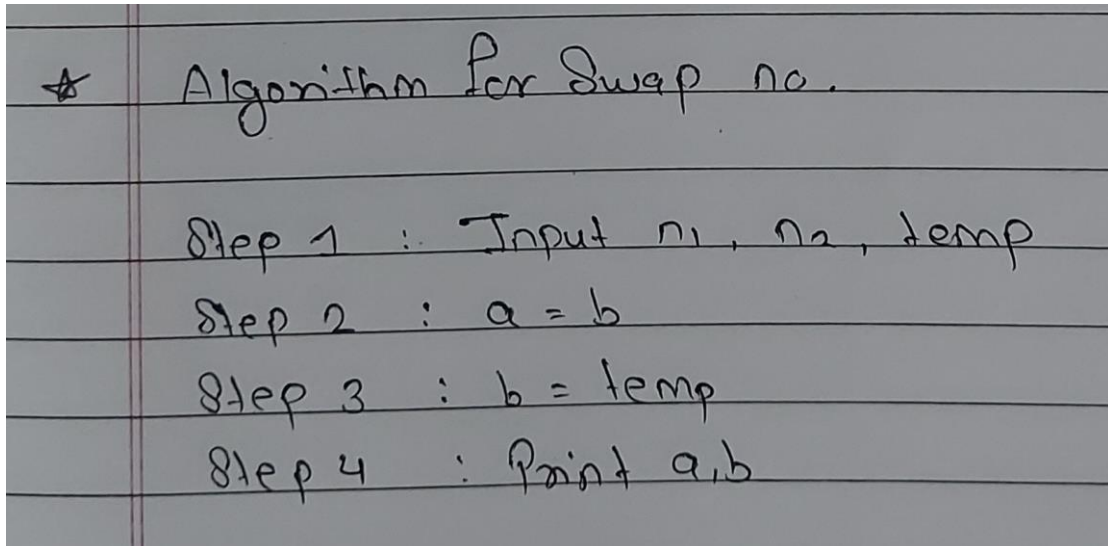 ☆ Algorithm for Swap no.
Step 1 : Input n1, n2, temp
Step 2 : a = b
Step 3 : b = temp
Step 4 : Print a,b